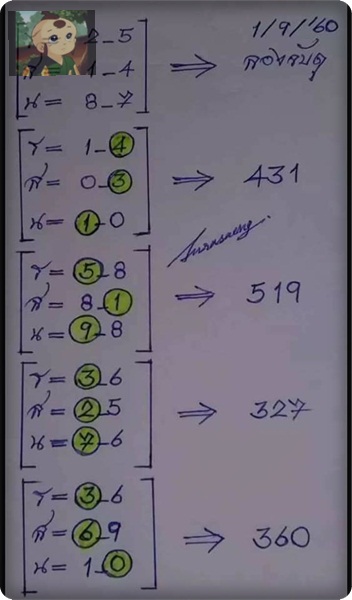 1/9/'60
2-5
ส = 1-4 ⇒ ลองจับดู
น = 8-7
ร = 1-4
ส = 0-3 ⇒ 431
น = 1-0
ร = 5-8
ส = 8-1 ⇒ 519
น = 9-8
ร = 3-6
ส = 2-5 ⇒ 327
น = 7-6
ร = 3-6
ส = 6-9 ⇒ 360
น = 1-0